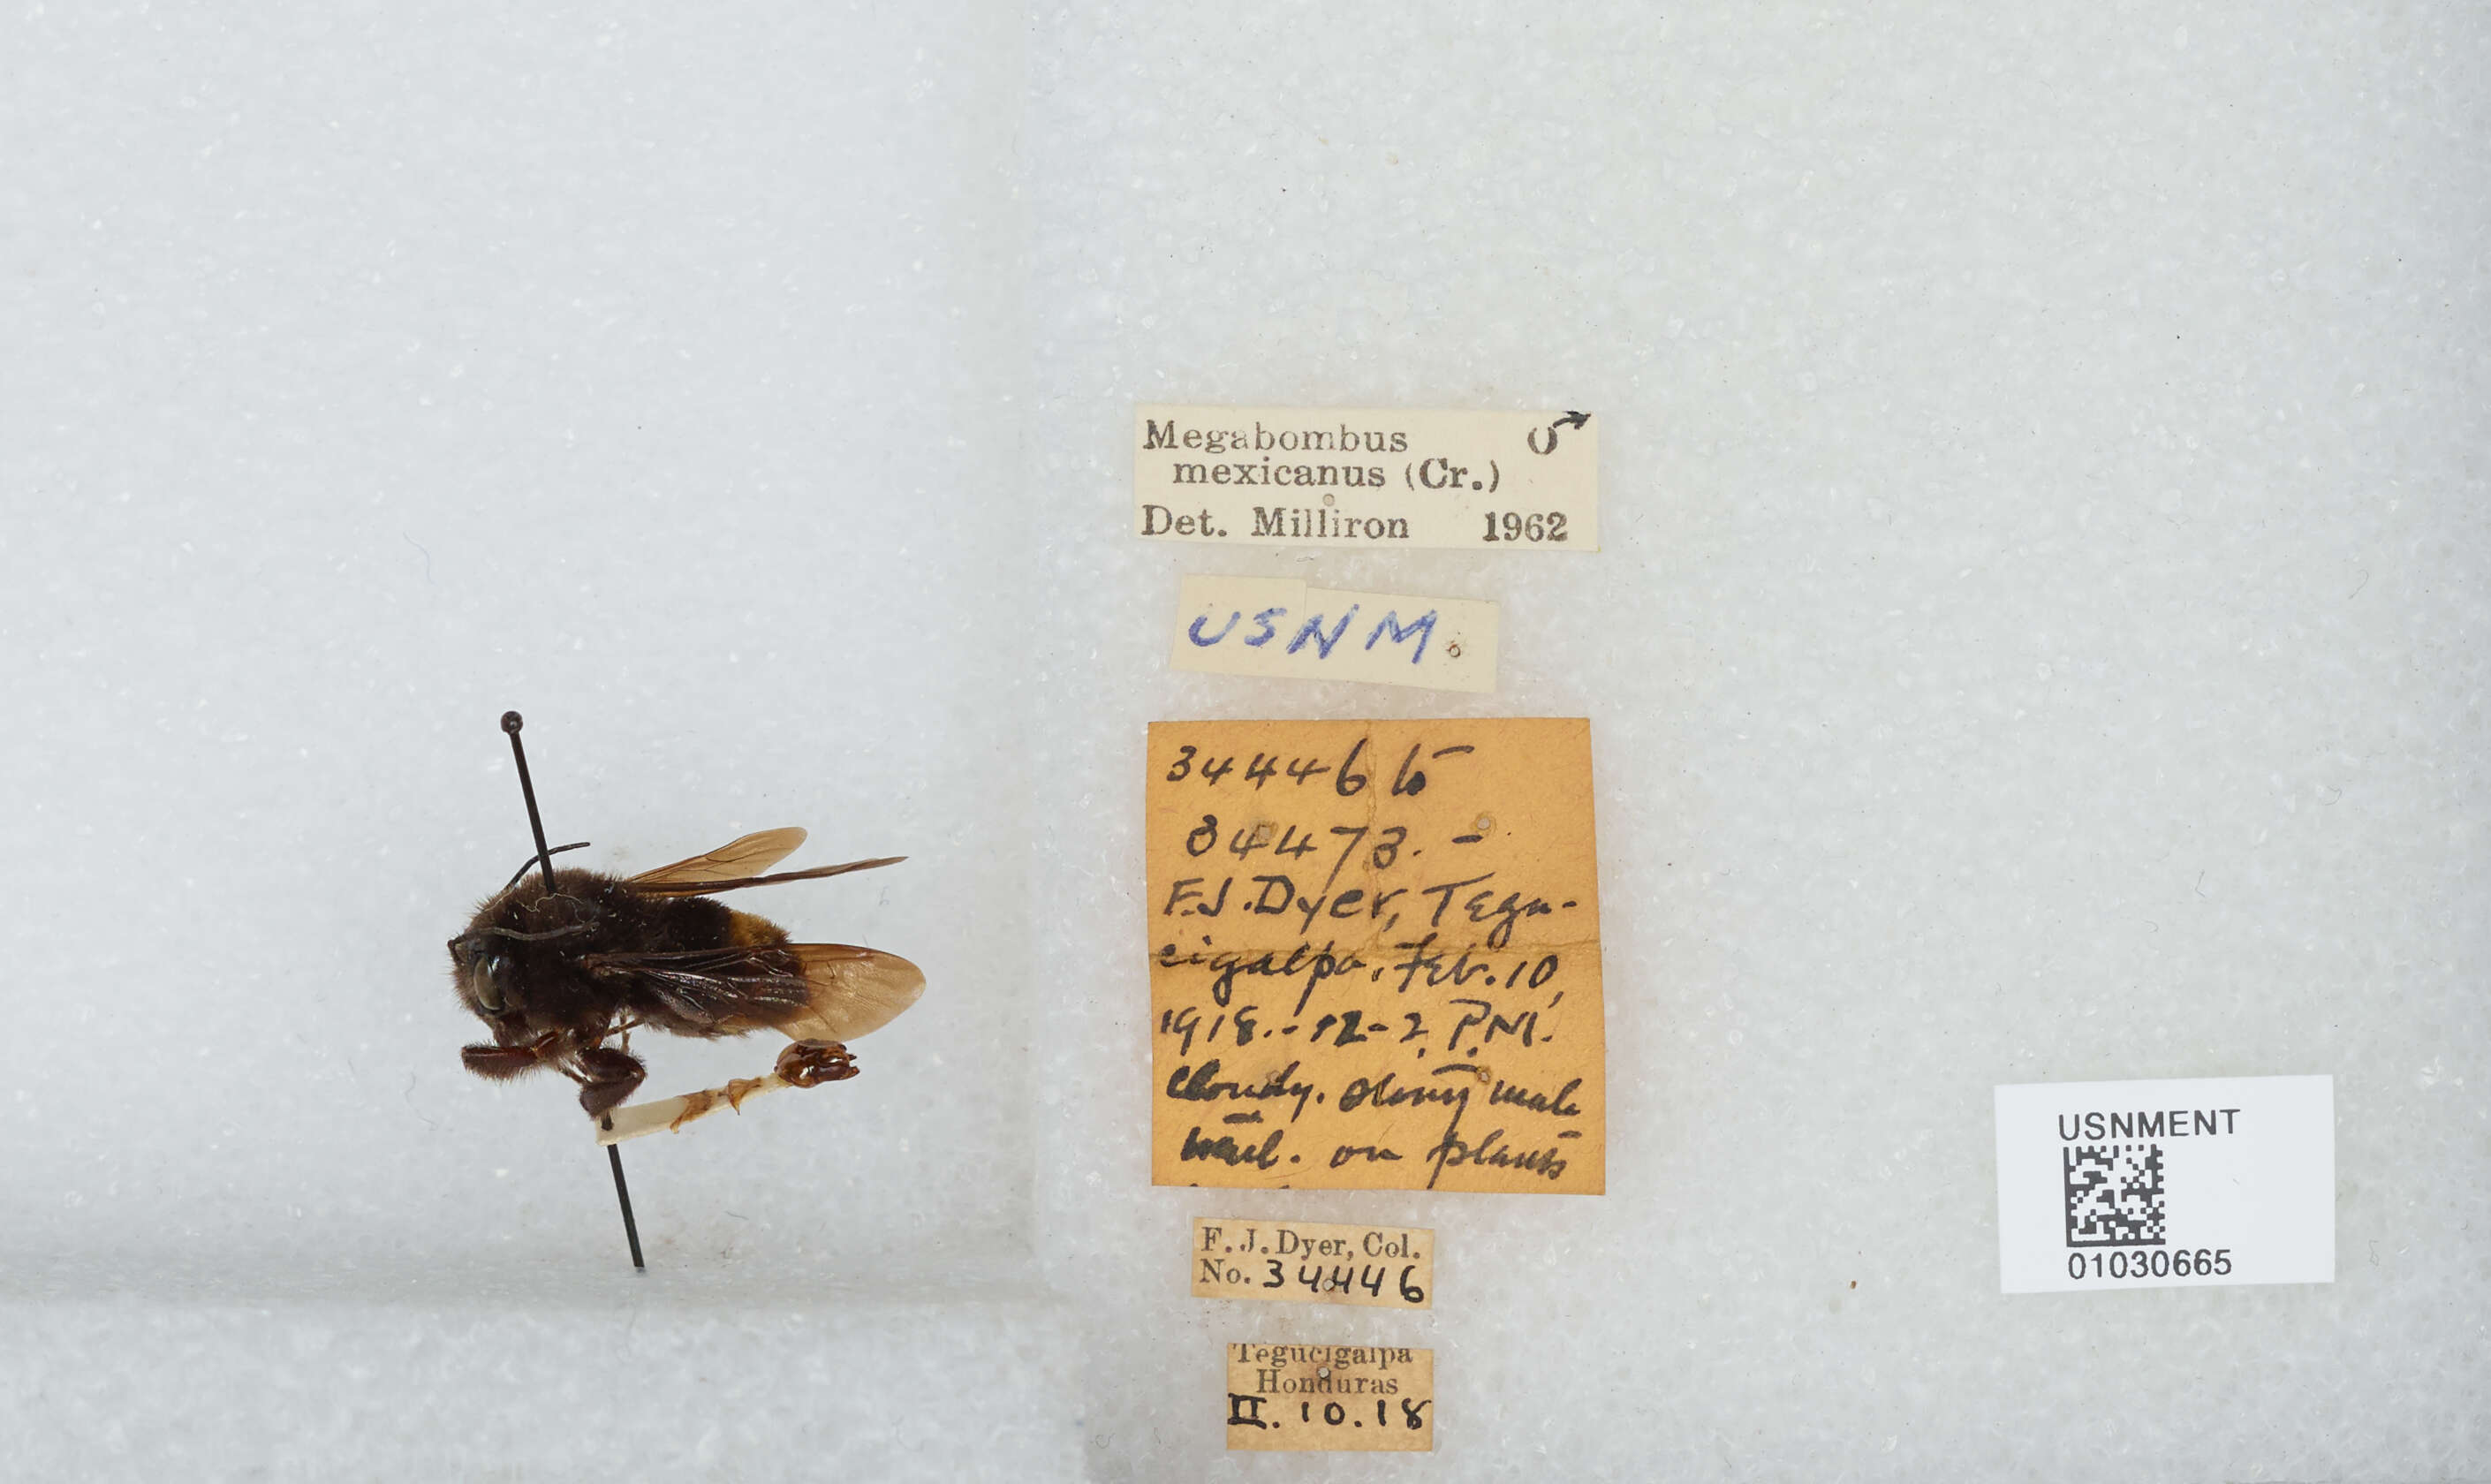 Megabombus ♂
mexicanus (Cr.)
Det. Milliron 1962
USNM.
34446 to
34473. -
F.J. Dyer, Tegu-
cigalpa, Feb. 10,
1918. - 12-2. P.M.
Cloudy. Along mule
trail. on plants
F. J. Dyer, Col.
No. 34446
Tegucigalpa
Honduras
II. 10. 18
USNMENT
01030665